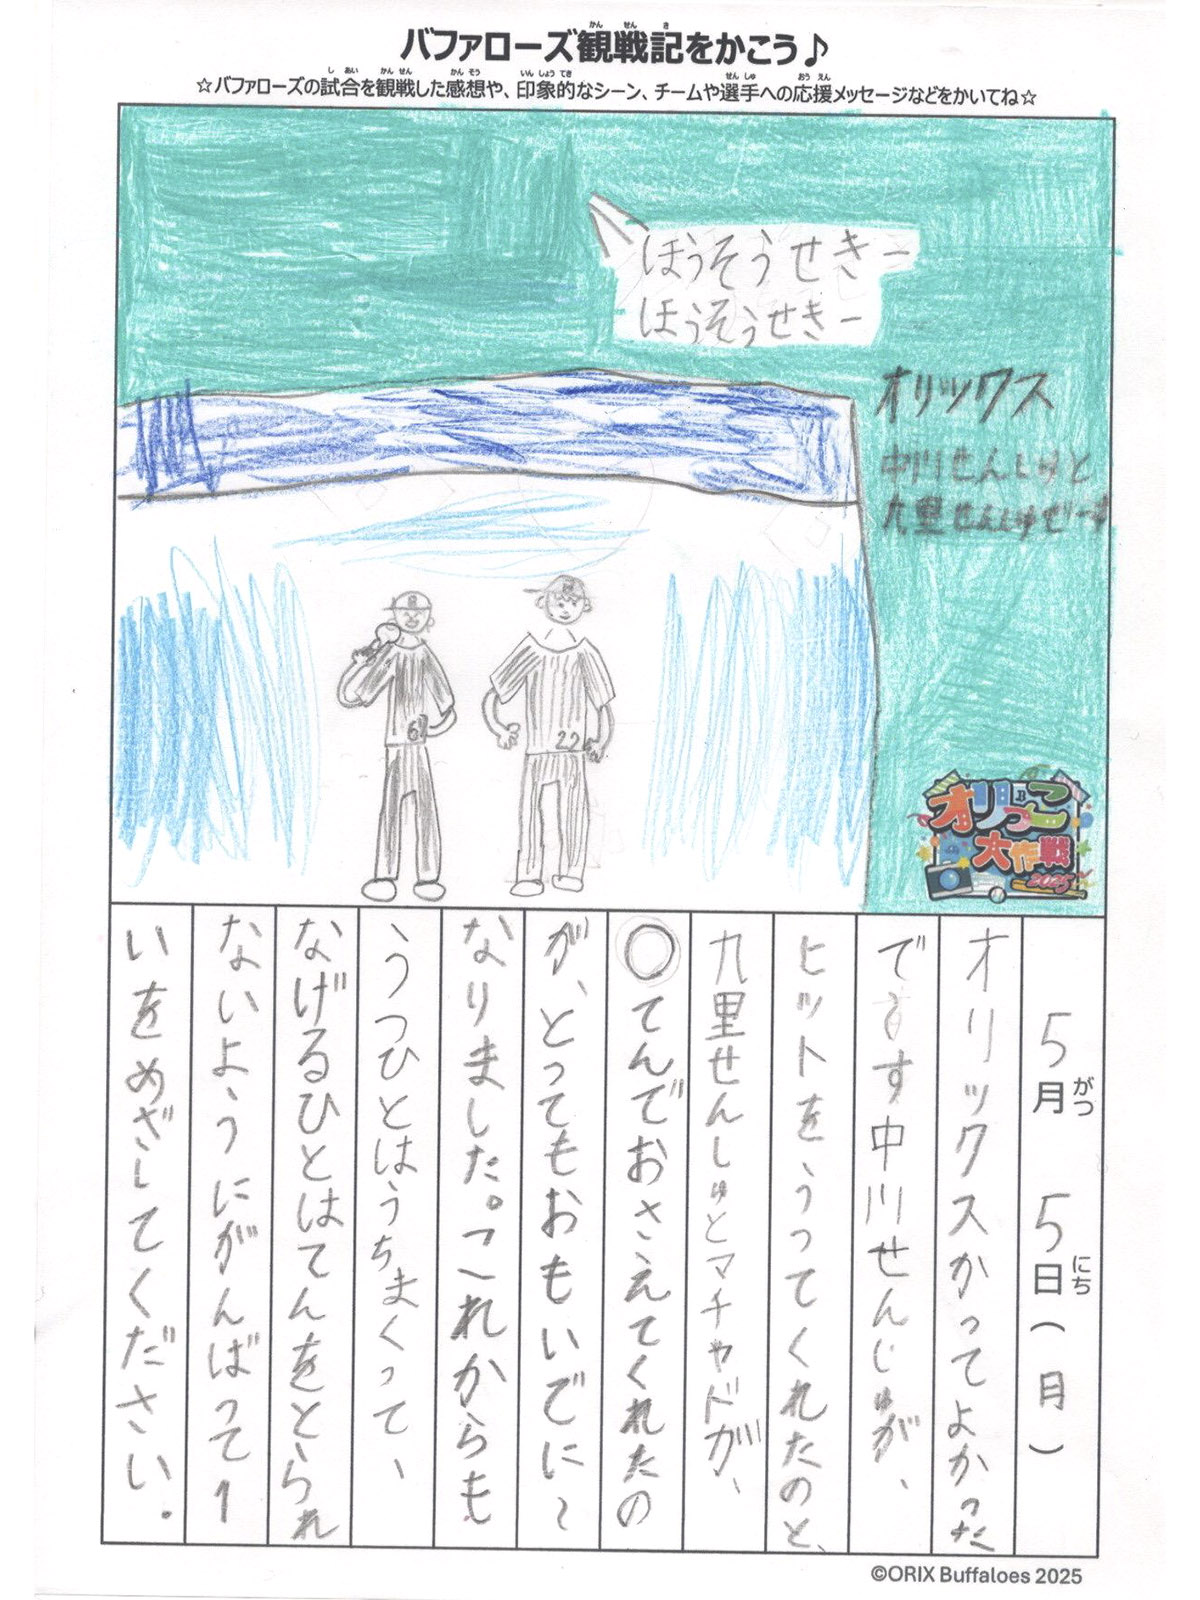 バファローズ観戦記をかこう♪
☆バファローズの試合を観戦した感想や、印象的なシーン、チームや選手への応援メッセージなどをかいてね☆
ほうそうせきー
ほうそうせきー
オリックス
中川せんしゅと
九里せんしゅぜ
オリっこ
大作戦
2025
5月5日(月)
オリックスかってよかった
です中川せんしゅが、
ヒットをうってくれたのと、
九里せんしゅとマチャドが、
〇てんでおさえてくれたの
が、とってもおもいでに
なりました。これからも
うつひとはうちまくって、
なげるひとはてんをとられ
ないようにがんばって1
いをめざしてください.
©ORIX Buffaloes 2025